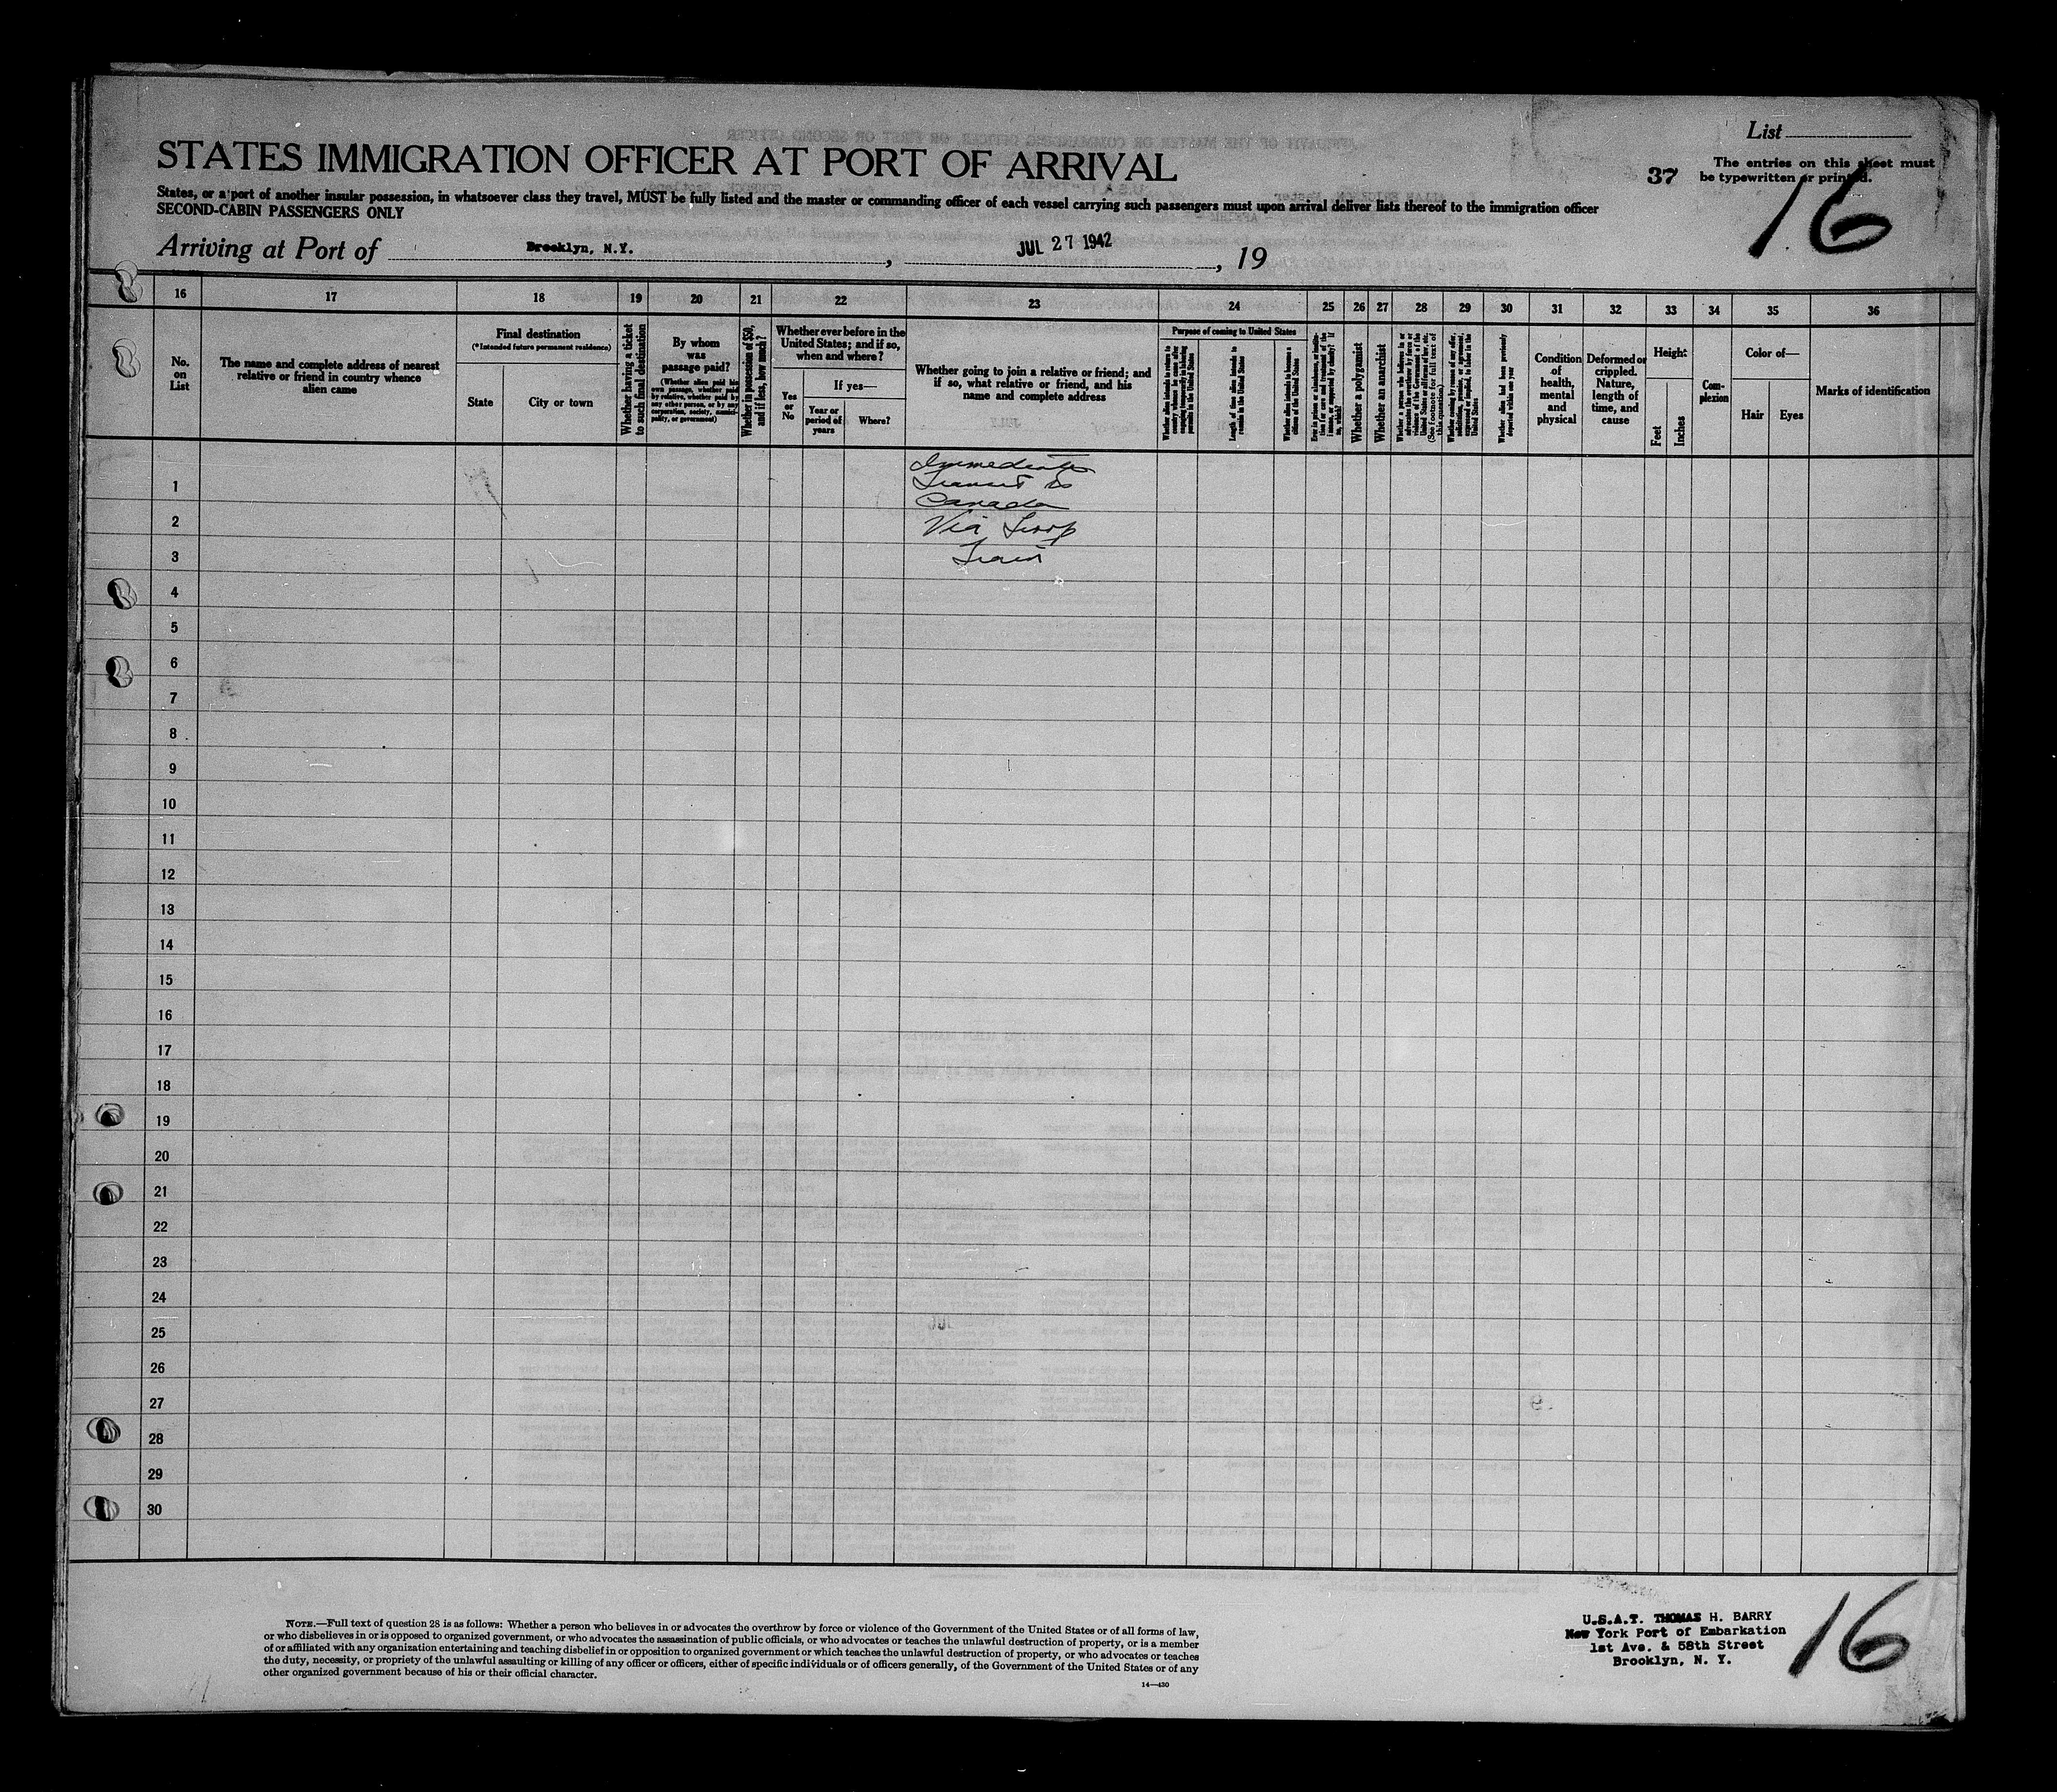 List
STATES IMMIGRATION OFFICER AT PORT OF ARRIVAL
37
The entries on this sheet must
be typewritten or printed.
16
States, or a port of another insular possession, in whatsoever class they travel, MUST be fully listed and the master or commanding officer of each vessel carrying such passengers must upon arrival deliver lists thereof to the immigration officer
SECOND-CABIN PASSENGERS ONLY
Arriving at Port of Brooklyn, N.Y., JUL 27 1942, 19
16 17 18 19 20 21 22 23 24 25 26 27 28 29 30 31 32 33 34 35 36
No.
on
List
The name and complete address of nearest
relative or friend in country whence
alien came
Final destination
(*Intended future permanent residence)
State
City or town
Whether having a ticket
to such final destination
By whom
was
passage paid?
(Whether alien paid his
own passage, whether paid
by relative, whether paid by
any other person, or by any
corporation, society, munici-
pality, or government)
Whether in possession of $50,
and if less, how much?
Whether ever before in the
United States; and if so,
when and where?
Yes
or
No
If yes—
Year or
period of
years
Where?
Whether going to join a relative or friend; and
if so, what relative or friend, and his
name and complete address
Purpose of coming to United States
Length of time alien intends to
remain in the United States
Whether alien intends to become a
citizen of the United States
Whether a polygamist
Whether an anarchist
Whether alien had been previously
deported within one year
Condition
of
health,
mental
and
physical
Deformed or
crippled.
Nature,
length of
time, and
cause
Height
Feet
Inches
Com-
plexion
Color of—
Hair
Eyes
Marks of identification
Immediate
Transit to
Canada
Via Troop
Train
1
2
3
4
5
6
7
8
9
10
11
12
13
14
15
16
17
18
19
20
21
22
23
24
25
26
27
28
29
30
NOTE.—Full text of question 28 is as follows: Whether a person who believes in or advocates the overthrow by force or violence of the Government of the United States or of all forms of law,
or who disbelieves in or is opposed to organized government, or who advocates the assassination of public officials, or who advocates or teaches the unlawful destruction of property, or is a member
of or affiliated with any organization entertaining and teaching disbelief in or opposition to organized government or which teaches the unlawful destruction of property, or who advocates or teaches
the duty, necessity, or propriety of the unlawful assaulting or killing of any officer or officers, either of specific individuals or of officers generally, of the Government of the United States or of any
other organized government because of his or their official character.
14—430
U.S.A.T. THOMAS H. BARRY
New York Port of Embarkation
1st Ave. & 58th Street
Brooklyn, N. Y.
16